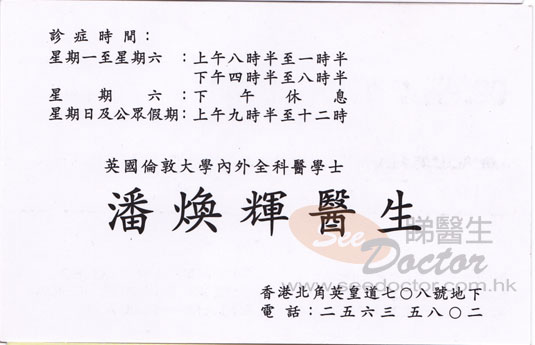 診症時間：
星期一至星期六：上午八時半至一時半
下午四時半至八時半
星期六：下午休息
星期日及公眾假期：上午九時半至十二時
英國倫敦大學內外全科醫學士
潘煥輝醫生
See Doctor 睇醫生
www.seedoctor.com.hk
香港北角英皇道七〇八號地下
電話：二五六三 五八〇二